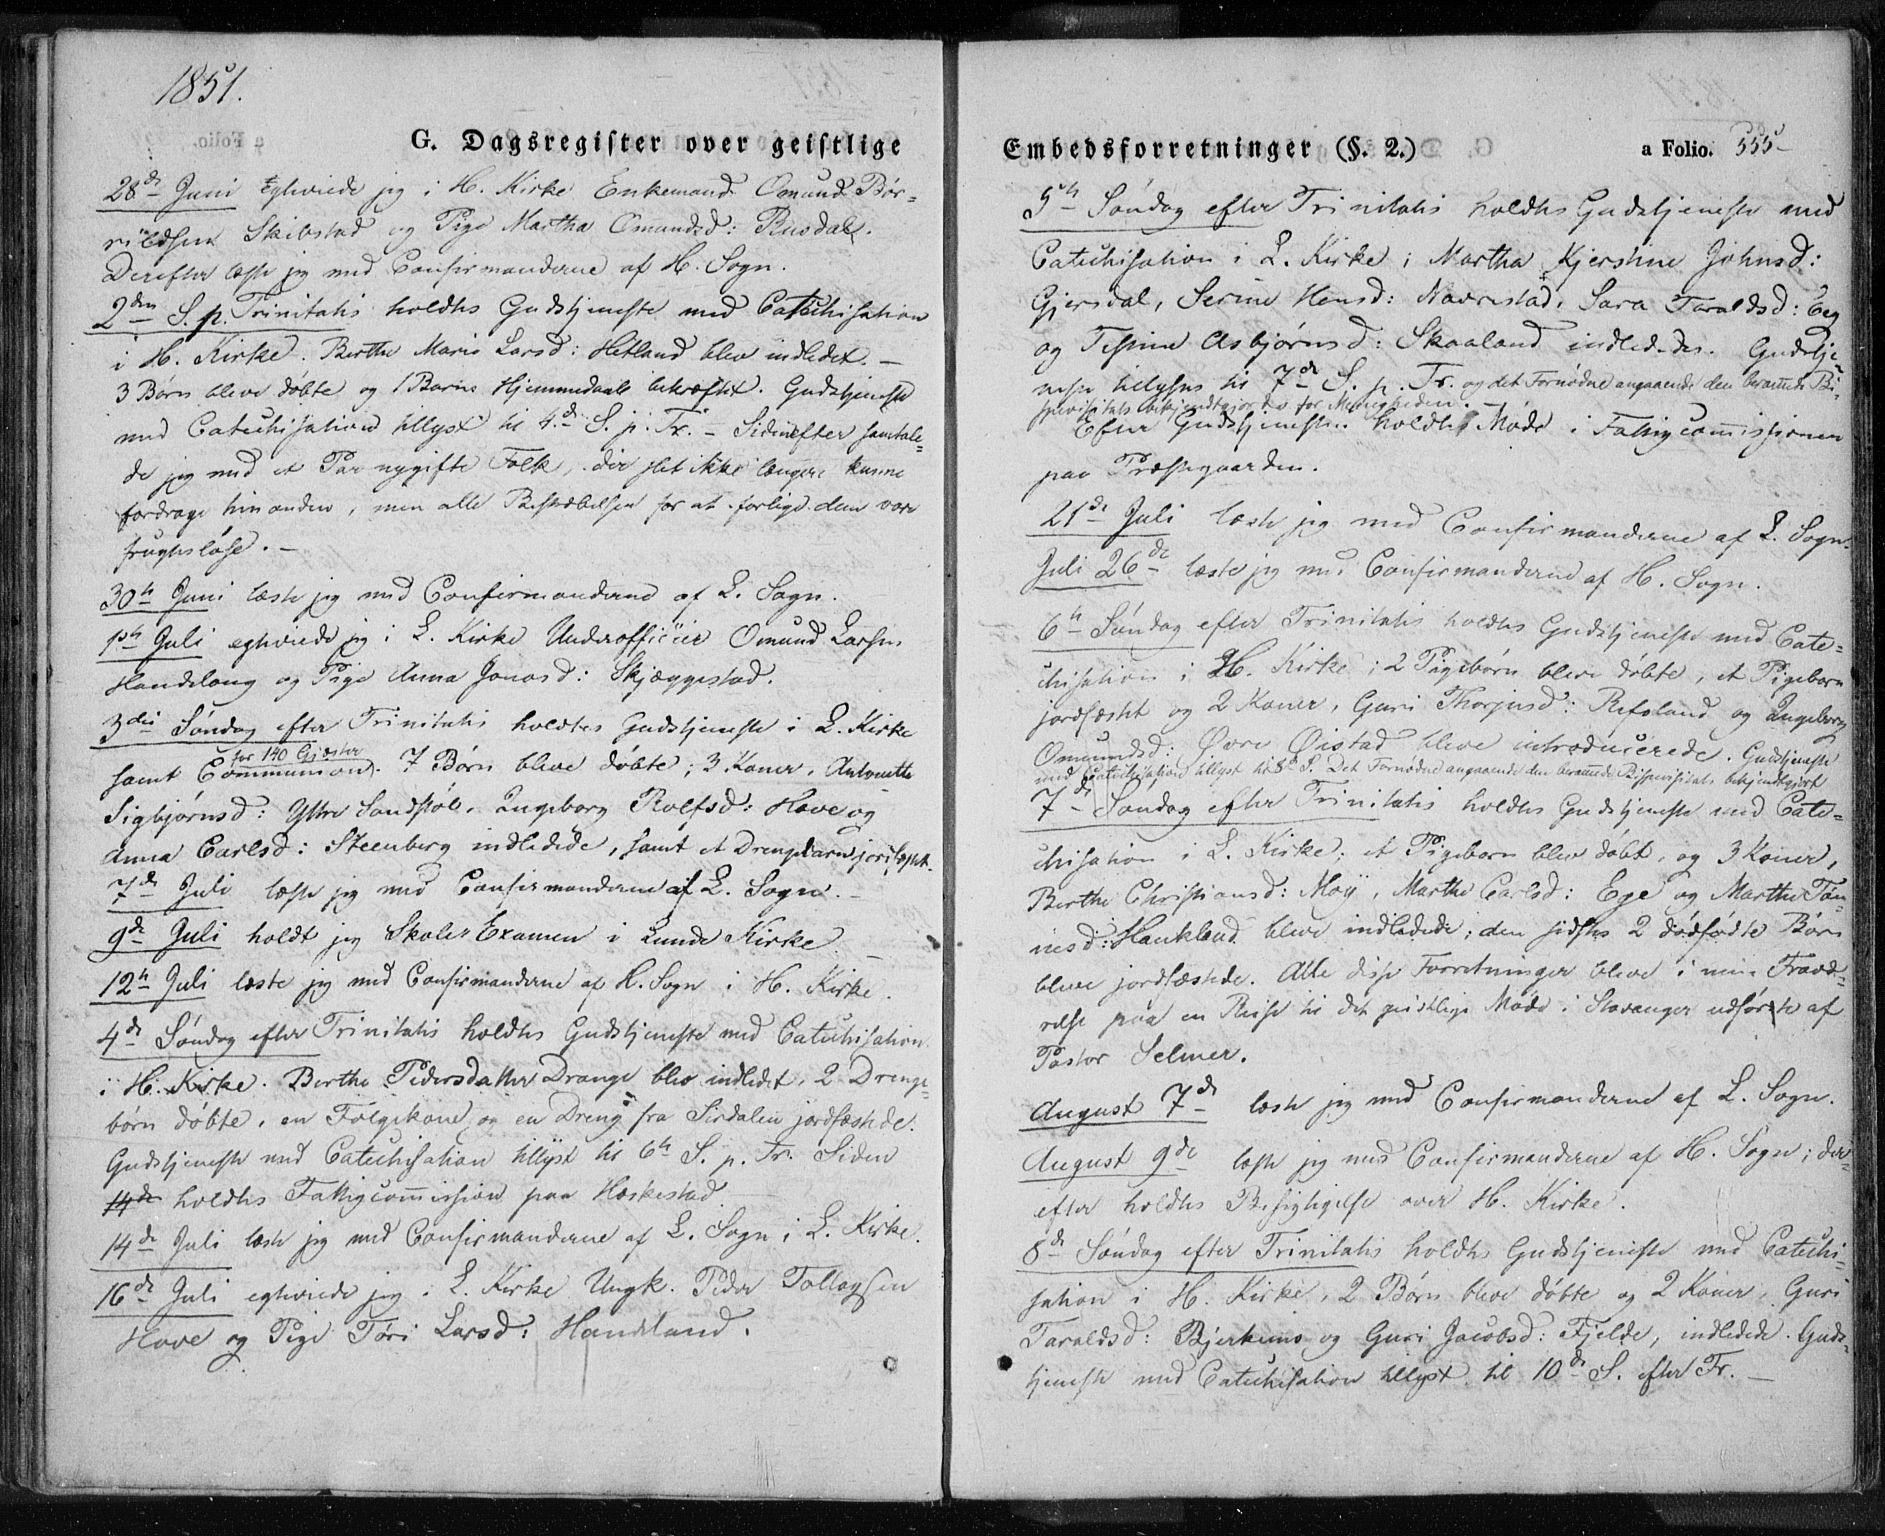 1851.
G. Dagsregister over geistlige
28de Juni eghviede jeg i H. Kirke Enkemand Omund Bør-
rildsen Skibstad og Pige Martha Omundsd: Rusdal.
Derefter læste jeg med Confirmanderne af H. Sogn.
2den S. p. Trinitatis holdtes Gudstjeneste med Catechisation
i H. Kirke. Berthe Marie Larsd: Hetland blev indledet. –
3 Børn bleve døbte og 1 Barns Hjemmedaab bekræftet. Gudstjeneste
med Catechisation tillyst til 4de S. p. Tr. – Sidenefter samtale-
de jeg med et Par nygifte Folk, der slet ikke længere kunne
fordrage hinanden, men alle Bestræbelser for at forlige dem vare
frugtesløse. –
30te Juni læste jeg med Confirmanderne af L. Sogn.
1ste Juli eghviede jeg i L. Kirke Underofficier Omund Larsen
Handeland og Pige Anna Jonasd: Skjæggestad.
3die Søndag efter Trinitatis holdtes Gudstjeneste i L. Kirke
for 140 Gjæster
samt Communion. 7 Børn bleve døbte; 3 Koner, Antonette
Sigbjørnsd: Ytre Sandstøl, Ingeborg Rolfsd: Hove og
Anna Carlsd: Steenberg indledede, samt et Drengebarn jordfæstet.
7de Juli læste jeg med Confirmanderne af L. Sogn. –
9de Juli holdt jeg Skoler Examen i Lunde Kirke –
12te Juli læste jeg med Confirmanderne af H. Sogn i H. Kirke.
4de Søndag efter Trinitatis holdtes Gudstjeneste med Catechisation
i H. Kirke. Berthe Pedersdatter Drange blev indledet, 2 Drenge-
børn døbte, en Følgekone og en Dreng fra Sirdalen jordfæstede.
Gudstjeneste med Catechisation tillyst til 6te S. p. Tr. Siden
14de holdtes Fattigcommission paa Hæskestad
14de Juli læste jeg med Confirmanderne af L. Sogn i L. Kirke.
16de Juli eghviede jeg i L. Kirke Ungk. Peder Tollagsen
Hove og Pige Tøri Larsd: Handeland.
Embedsforretninger (§. 2.) a Folio. 555
5te Søndag efter Trinitatis holdtes Gudstjeneste med
Catechisation i L. Kirke; Martha Kjerstine Johnsd:
Gjersdal, Serine Hensd: Navrestad, Sara Taraldsd: Eeg
og Tesine Asbjørnsd: Skaaland indlededes. Gudstje-
neste tillystes til 7de S. p. Tr. og det Fornødne angaaende den berammede Bi-
spevisitats bekjendtgjordes for Menigheden. –
Efter Gudstjenesten holdtes Møde i Fattigcommissionen
paa Præstegaarden.
21de Juli læste jeg med Confirmanderne af L. Sogn.
Juli 26de læste jeg med Confirmanderne af H. Sogn.
6te Søndag efter Trinitatis holdtes Gudstjeneste med Cate-
chisation i H. Kirke; 2 Pigebørn bleve døbte, et Pigebarn
jordfæstet og 2 Koner, Guri Thorjusd: Refsland og Ingeborg
Omundsd: Øvre Øistad bleve introducerede. Gudstjeneste
med Catechisation tillyst til 8de S. Det Fornødne angaaende den berammede Bispevisitats bekjendtgjort
7de Søndag efter Trinitatis holdtes Gudstjeneste med Cate-
chisation i L. Kirke; et Pigebarn blev døbt, og 3 Koner,
Berthe Christiansd: Moÿ, Marthe Carlsd: Ege og Marthe Tøn-
nesd: Haukland bleve indledede; den sidstes 2 dødfødte Børn
bleve jordfæstede. Alle disse Forretninger bleve i min Fravæ-
relse paa en Reise til det geistlige Møde i Stavanger udførte af
Pastor Selmer.
August 7de læste jeg med Confirmanderne af L. Sogn.
August 9de læste jeg med Confirmanderne af H. Sogn; der-
efter holdtes Besigtigelse over H. Kirke.
8de Søndag efter Trinitatis holdtes Gudstjeneste med Catechi-
sation i H. Kirke, 2 Børn bleve døbte og 2 Koner, Guri
Taraldsd: Bjerkemo og Guri Jacobsd: Fjelde, indledede. Guds-
tjeneste med Catechisation tillyst til 10de S. efter Tr. –